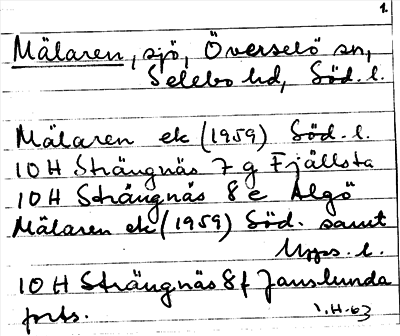 1.
Mälaren, sjö, Överselö sn,
Selebo hd, Söd. l.
Mälaren ek (1959) Söd. l.
10 H Strängnäs 7 g Fjällsta
10 H Strängnäs 8 e Algö
Mälaren ek (1959) Söd. samt
Upps. l.
10 H Strängnäs 8 f Janslunda
forts.
1.H.63